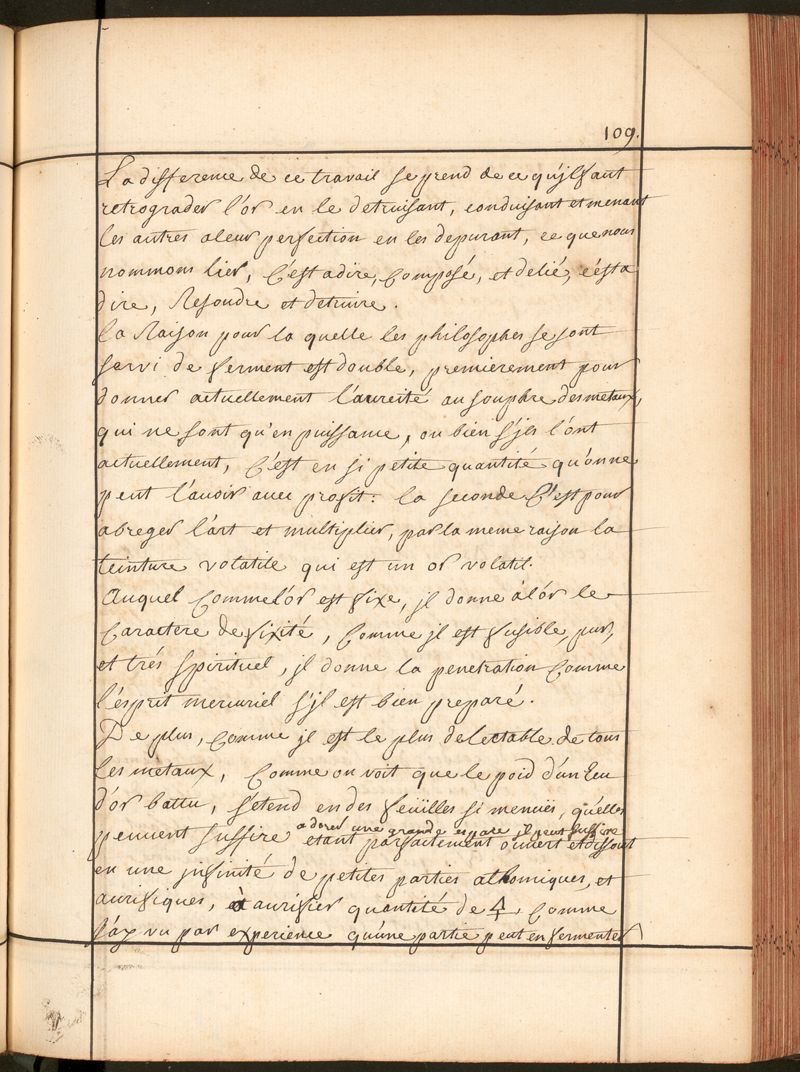 109.
La difference de ce travail se prend de ce qu'jl faut
retrograder l'or en le detruisant, conduisant et menant
les autres a leur perfection en les depurant, ce que nous
nommons lier, C'est a dire, Composé, et delié, c'est a
dire, Resoudre et detruire.
La Raison pour la quelle les philosophes se sont
servi de ferment est double, premierement pour
donner actuellement l'aureité au souphre des metaux,
qui ne sont qu'en puissance, ou bien s'jls l'ont
actuellement, C'est en si petite quantité qu'on ne
peut l'avoir avec profit: la seconde C'est pour
abreger l'art et multiplier, par la meme raison la
teinture volatile qui est un or volatil.
Auquel Comme l'or est fixe, jl donne à l'or le
Caractere de fixité, Comme jl est fusible, pur,
et trés spirituel, jl donne la penetration Comme
l'esprit mercuriel s'jl est bien preparé.
De plus, Comme jl est le plus delectable de tous
les metaux, Comme on voit que le poid d'un Ecu
d'or battu, s'etend en des feüilles si menües, qu'elles
peuvent suffire a dorer une grande espace jl peut suffire
etant parfaitement ouvert et dissout
en une jnfinité de petites parties athomiques, et
aurifiques, à aurifier quantité de 🜍 Comme
j'ay vu par experience qu'une partie peut en fermenter